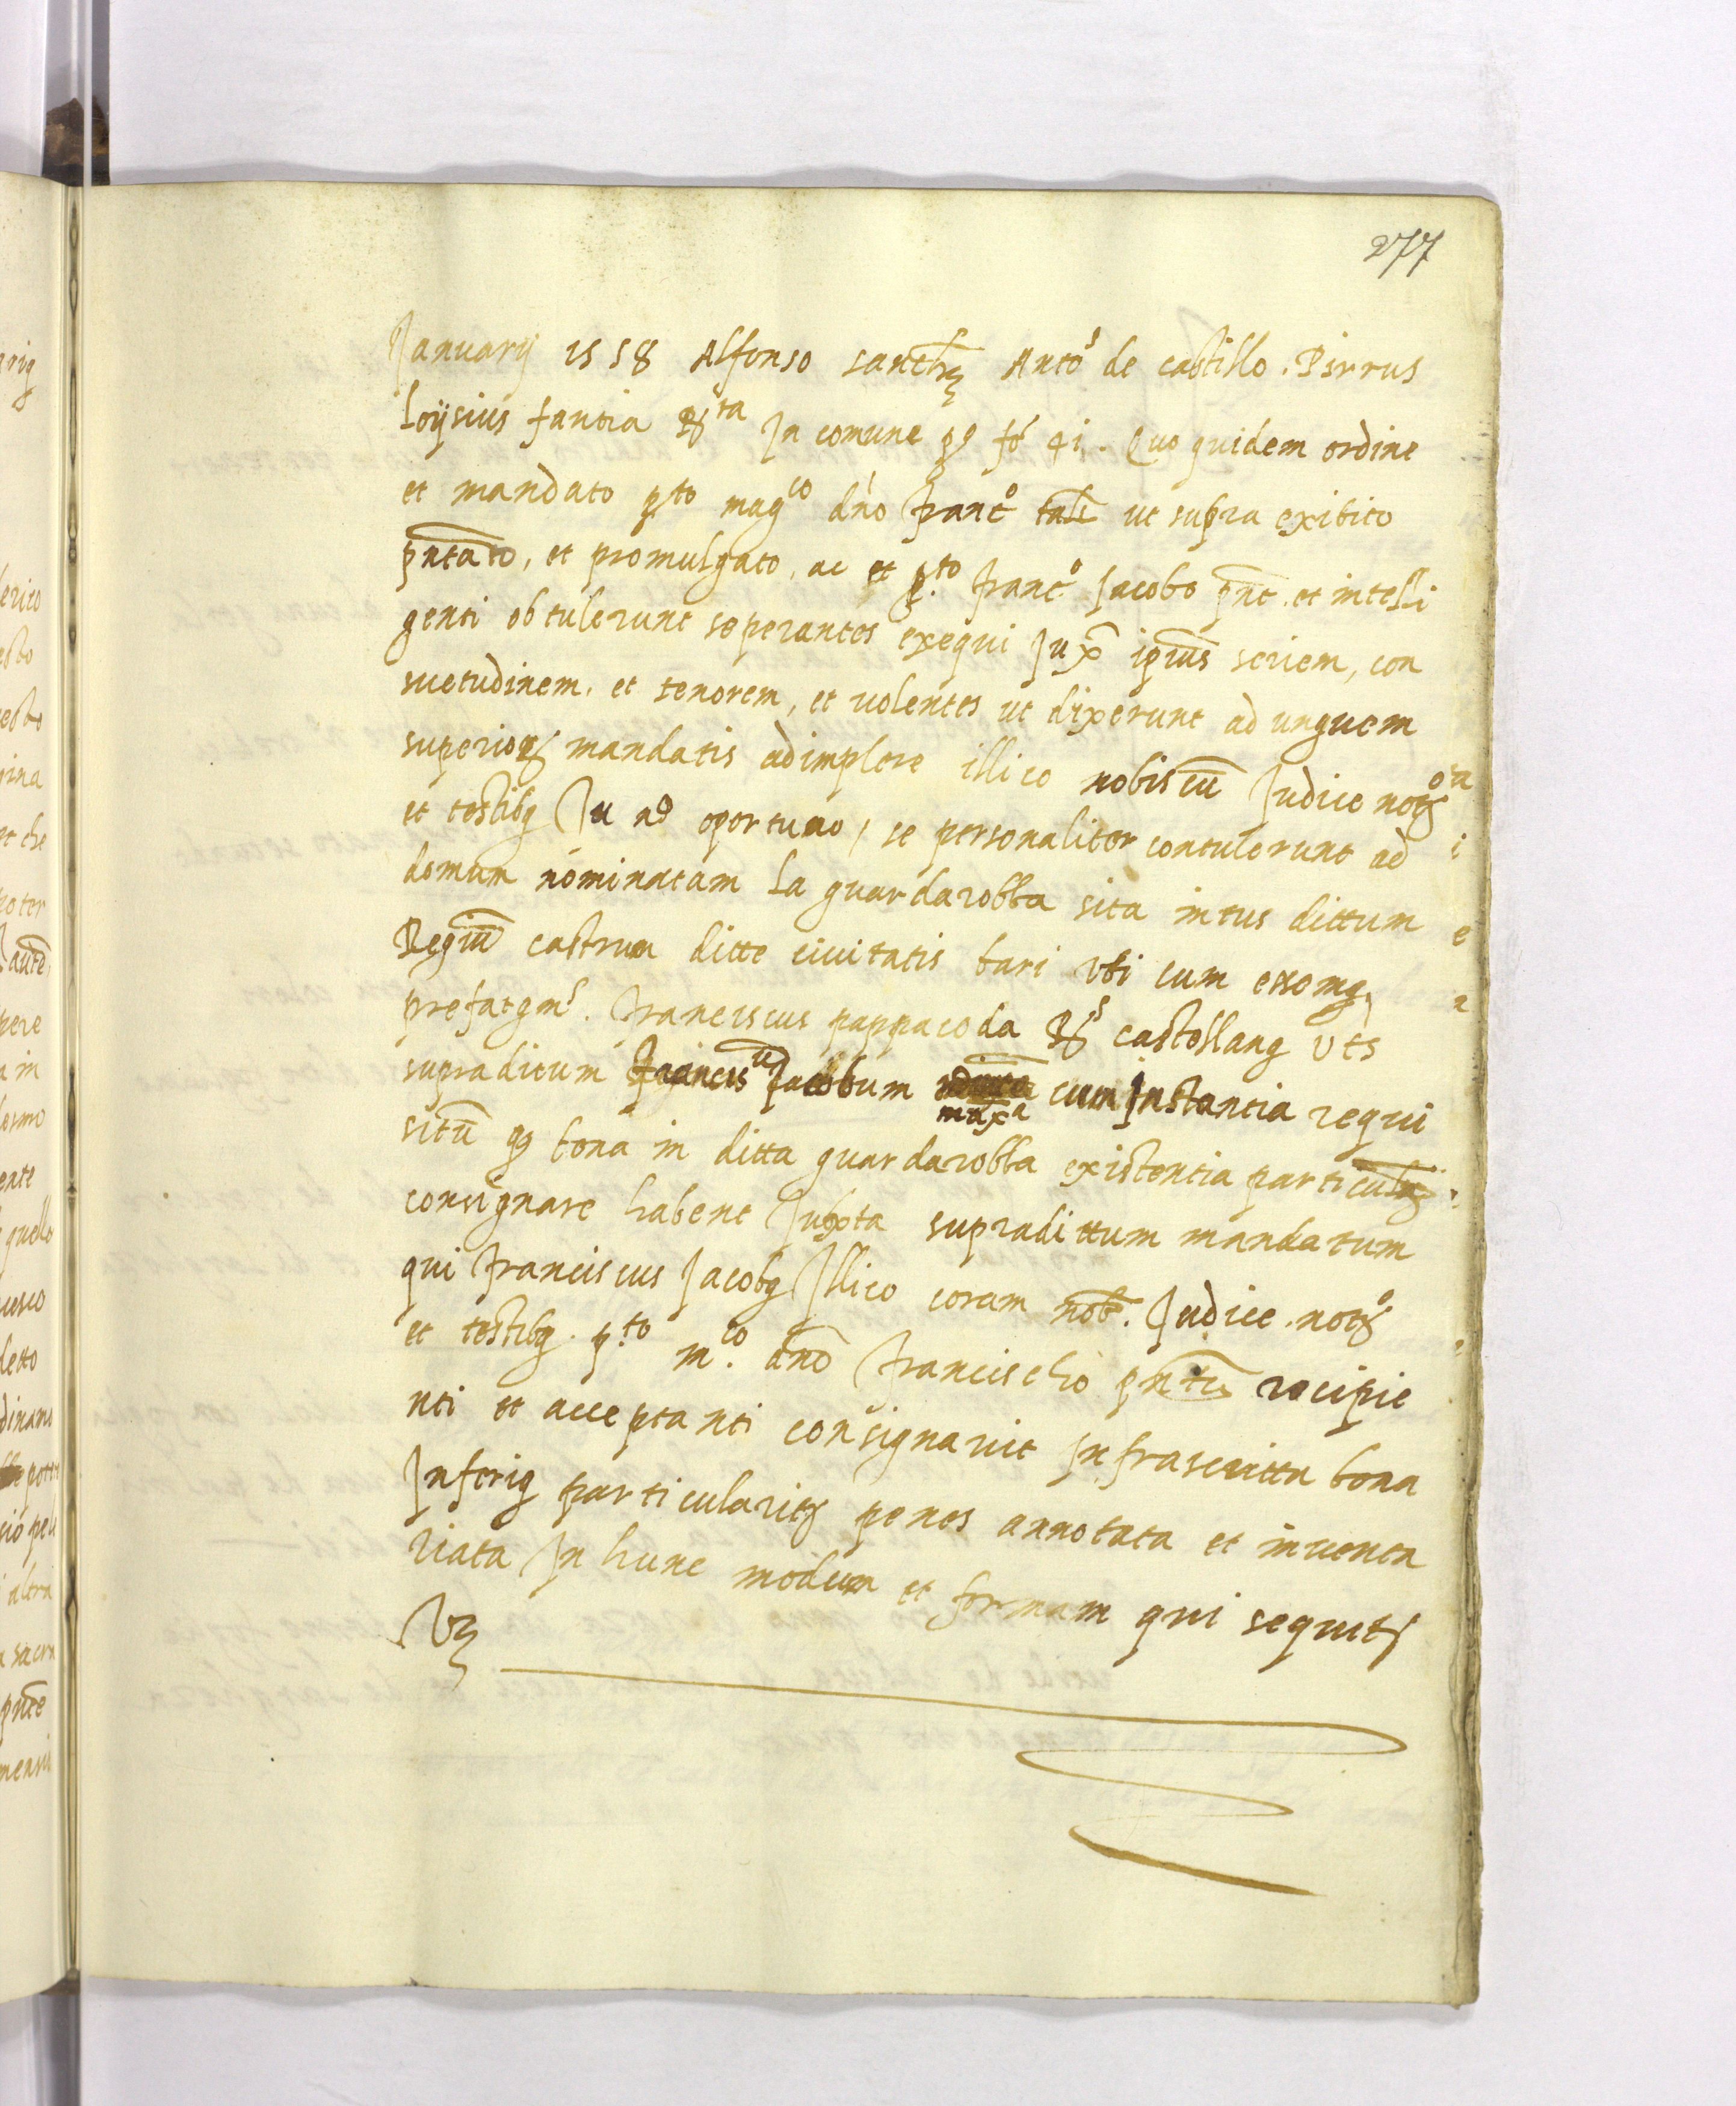 277
Januarÿ 1558 Alfonso sanchz Antõ de castillo. Pirrus
Loÿsius fantia Rta In comune pº fõ 41. Quo quidem ordine
et mandato pto magco dño francº tali ut supra exibito
pntato, et promulgato, ac et p.to francº Jacobo pnt. et intelli
genti obtulerunt se perantes exequi Jux ipius seriem, con
suetudinem, et tenorem, et volentes ut dixerunt ad unguem
superior mandatis adimplere illico nobiscu Judice notº
et testibq Ju ad oportuno, se personaliter contulerunt ad
domum nominatam La guardarobba sita intus dittum
Regiu castrum ditte civitatis bari Ubi cum essemq,
prefatqms. franciscus pappacoda Rs castellanq Uts
supradictum francisu Jacobum maxa cum Instantia requi
situ qq bona in ditta guardarobba existentia particulr
consignare habent Juxta supradittum mandatum
qui franciscus Jacobq Illico coram nob. Judice. notº
et testibq. p.to m.co dno francischo pntu recipie
nti et acceptanti consignavit Infrascritta bona
Inferiq particulariter penes annotata et inventa
riata In hunc modum et formam qui sequitr
Vz